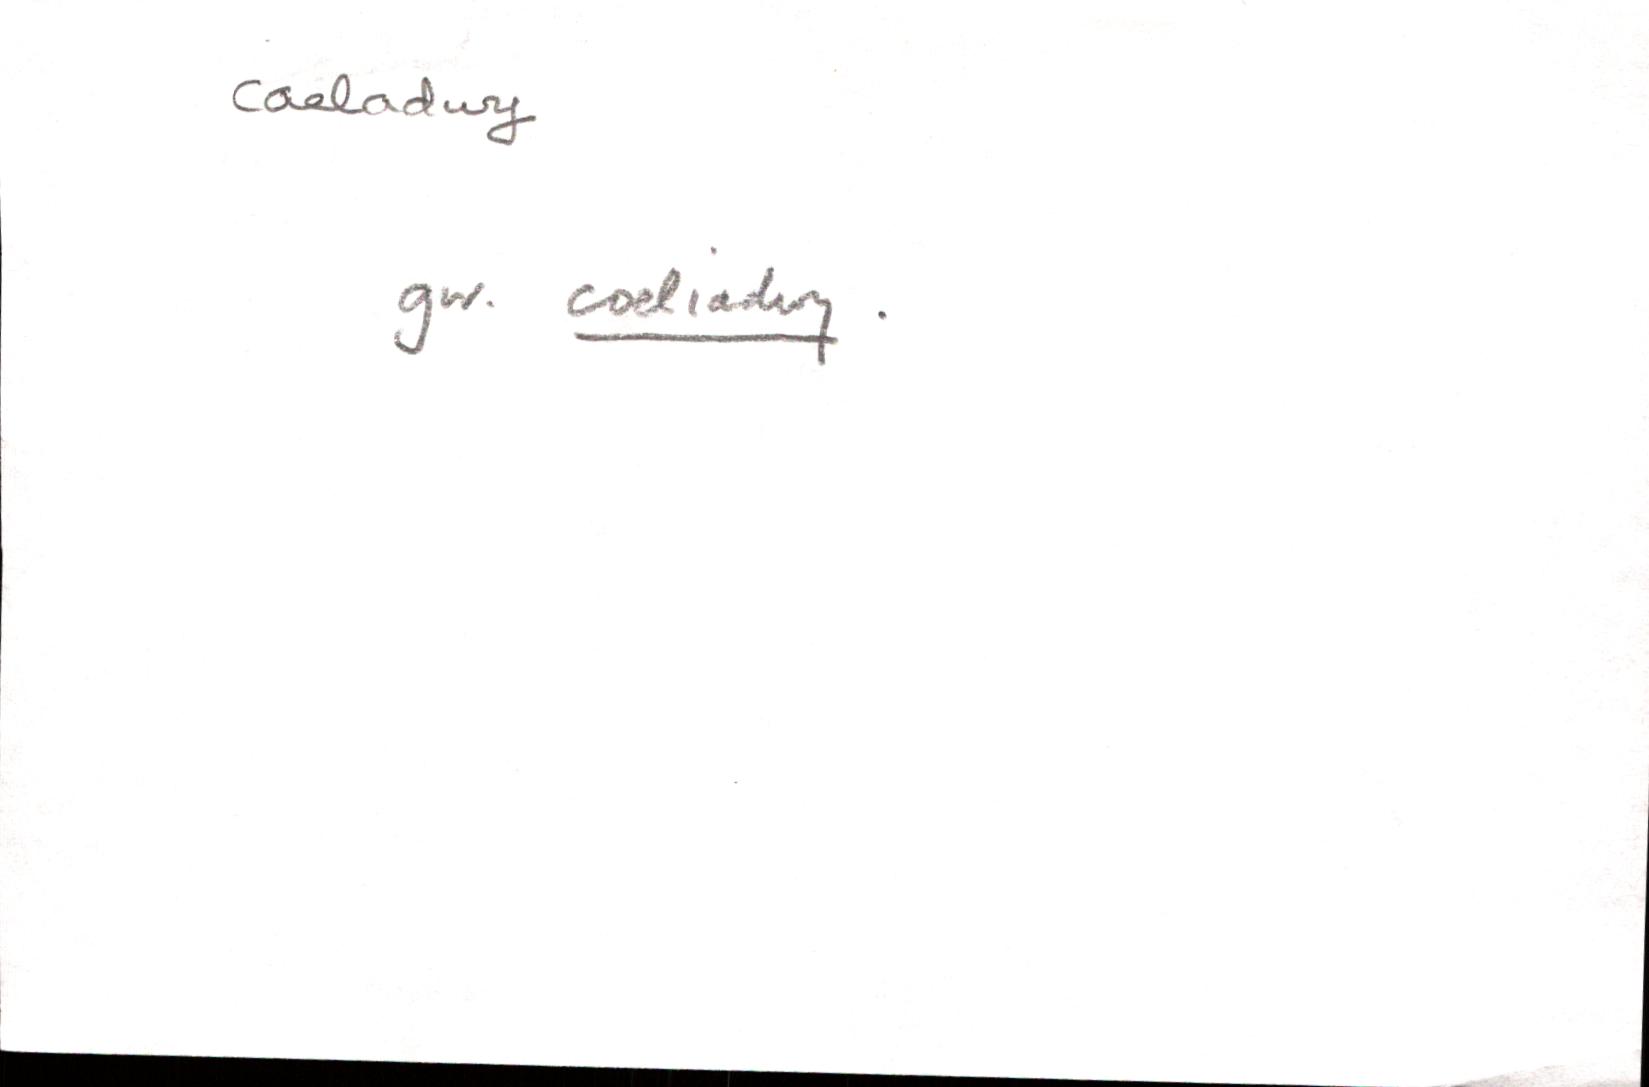 caeladwy
gw. coeliadwy.